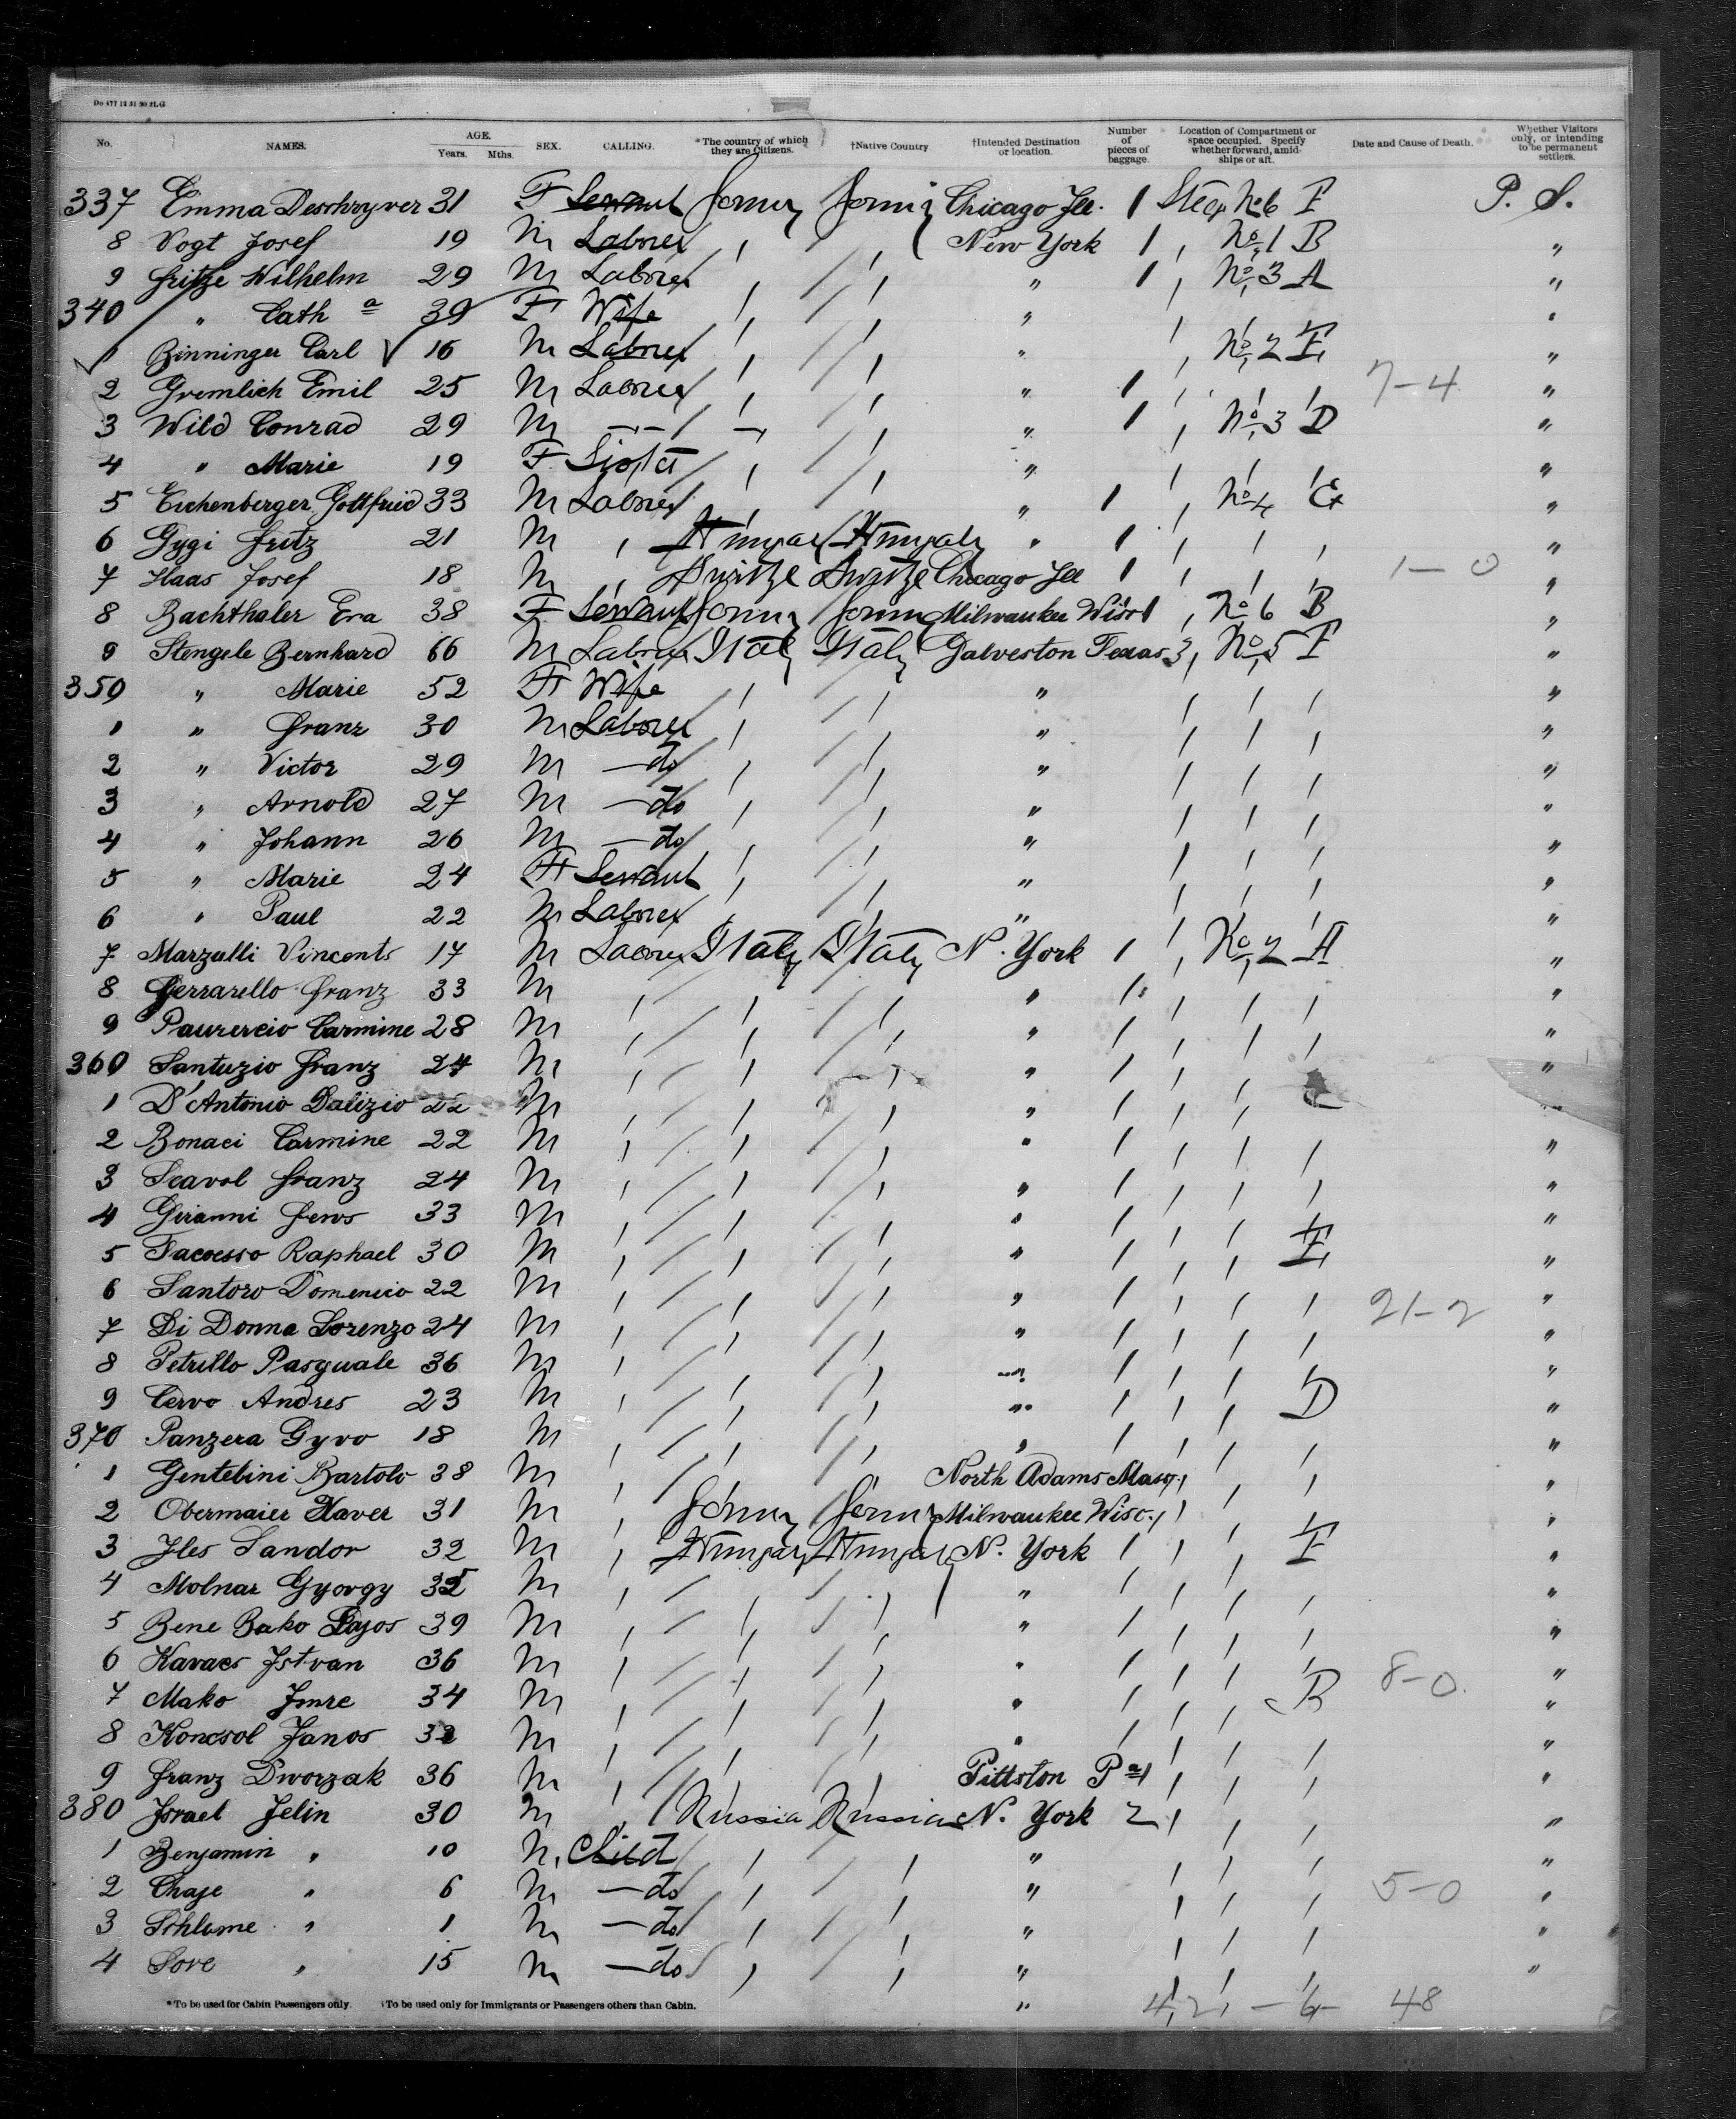 Do 477 12 31 90 2LG
No. NAMES. AGE. Years. Mths. SEX. CALLING. *The country of which they are Citizens. †Native Country †Intended Destination or location. Number of pieces of baggage. Location of Compartment or space occupied. Specify whether forward, amidships or aft. Date and Cause of Death. Whether Visitors only, or intending to be permanent settlers.
337 Emma Deschryver 31 F Servant Germy Germy Chicago Ill. 1 Steeg No 6 F P. S.
8 Vogt Josef 19 M Laborer " " New York 1 " No 1 B "
9 Fritze Wilhelm 29 M Laborer " " " 1 " No 3 A "
340 " Cath a 39 F Wife " " " "
1 Binninger Carl 16 M Laborer " " " " No 2 F "
2 Gremlich Emil 25 M Laborer " " " 1 " " " 7-4 "
3 Wild Conrad 29 M " " " 1 " No 3 D "
4 " Marie 19 F Sister " " " " " " "
5 Eichenberger Gottfried 33 M Laborer " " " 1 " No 4 "
6 Gygi Fritz 21 M " Hungary Hungary " 1 " " " "
7 Haas Josef 18 M " Switze Switze Chicago Ill 1 " " " 1-0 "
8 Bachthaler Eva 38 F Servant Germy Germy Milwaukee Wisc 1 " No 6 B "
9 Stengele Bernhard 66 M Laborer Italy Italy Galveston Texas 3 " No 5 F "
350 " Marie 52 F Wife " " " " " " "
1 " Franz 30 M Laborer " " " " " " "
2 " Victor 29 M do " " " " " " "
3 " Arnold 27 M do " " " " " " "
4 " Johann 26 M do " " " " " " "
5 " Marie 24 F Servant " " " " " " "
6 " Paul 22 M Laborer " " " " " " "
7 Marzulli Vincents 17 M Laborer Italy Italy N. York 1 " No 2 A "
8 Ferrarello Franz 33 M " " " " 1 " " " "
9 Paurercio Carmine 28 M " " " " 1 " " " "
360 Santuzio Franz 24 M " " " " 1 " " " "
1 D'Antonio Dalizio 22 M " " " " 1 " " "
2 Bonaci Carmine 22 M " " " " 1 " " " "
3 Scavol Franz 24 M " " " " 1 " " " "
4 Giranni Fews 33 M " " " " 1 " " " "
5 Facoesso Raphael 30 M " " " " 1 " " F "
6 Santoro Domenico 22 M " " " " 1 " " " "
7 Di Donna Lorenzo 24 M " " " " 1 " " " 21-2 "
8 Petrillo Pasquale 36 M " " " " 1 " " " "
9 Cervo Andres 23 M " " " " 1 " " D "
370 Panzera Gyvo 18 M " " " " 1 " " " "
1 Gentebini Bartolo 38 M " " " North Adams Mass. 1 " " " "
2 Obermaier Xaver 31 M " Germy Germy Milwaukee Wisc. 1 " " " "
3 Iles Sandor 32 M " Hungary Hungary N. York 1 " " F "
4 Molnar Gyorgy 32 M " " " " 1 " " " "
5 Bene Bako Lajos 39 M " " " " 1 " " " "
6 Kavacs Istvan 36 M " " " " 1 " " " "
7 Mako Imre 34 M " " " " 1 " " B 8-0. "
8 Koncsol Janos 32 M " " " " 1 " " " "
9 Franz Dworzak 36 M " " " Pittston Pa 1 " " " "
380 Israel Jelin 30 M " Russia Russia N. York 2 " " " "
1 Benjamin " 10 M. Child " " " " " " "
2 Chaje " 6 M do " " " " " " 5-0 "
3 Schlome " 1 M do " " " " " " "
4 Sore " 15 M do " " " " " " "
*To be used for Cabin Passengers only. †To be used only for Immigrants or Passengers others than Cabin. " 48